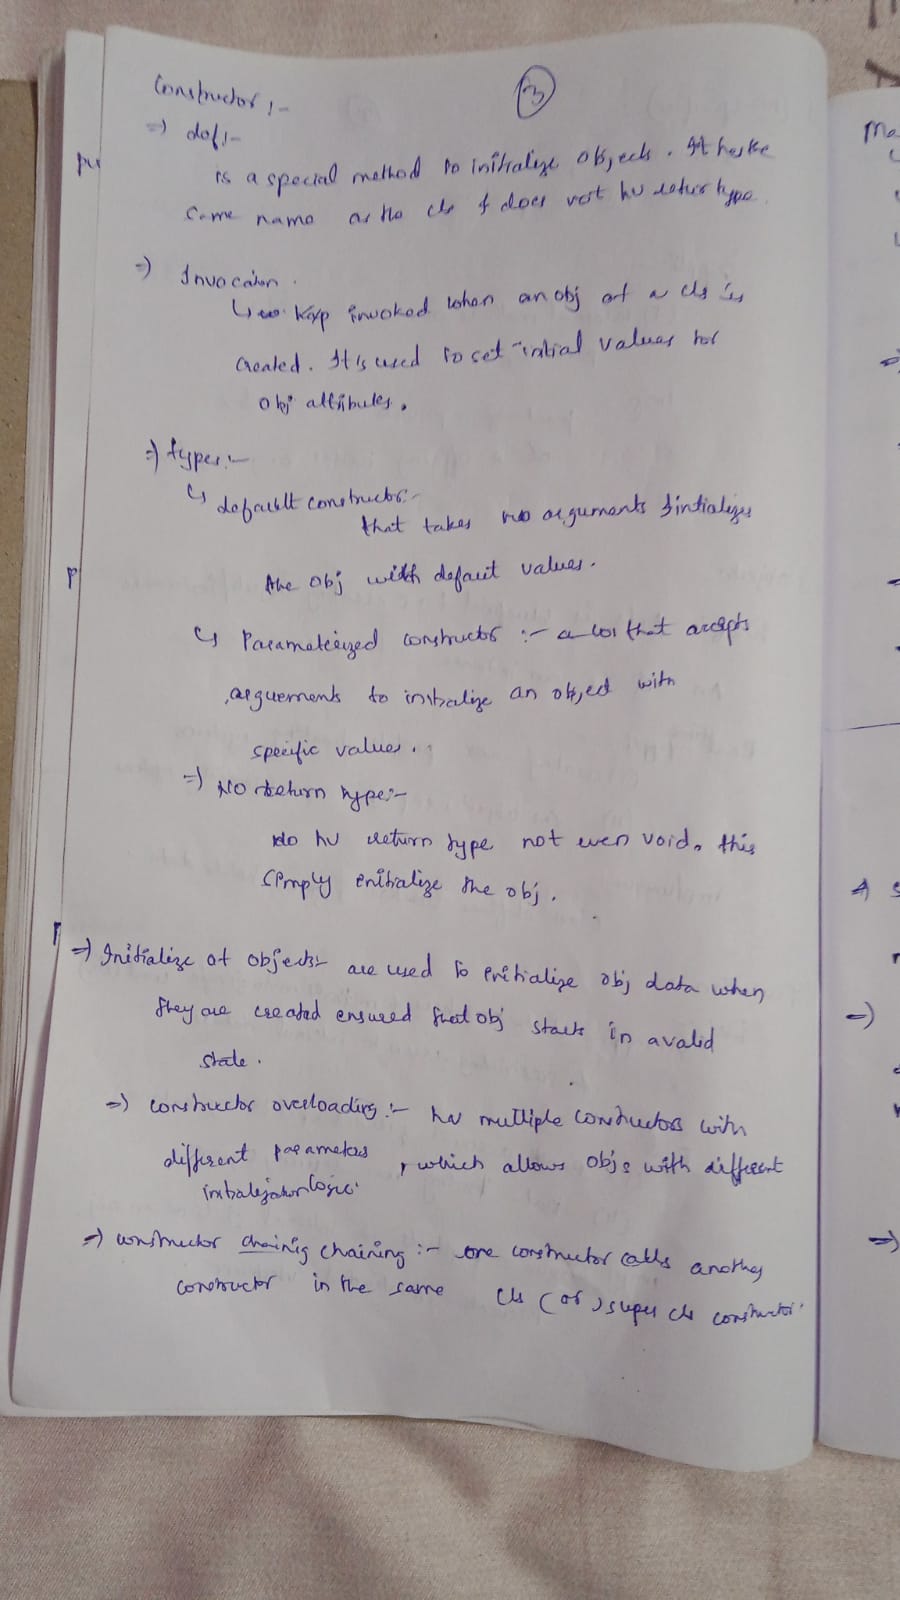 3
Constructor :-
=> def :-
is a special method to initialize objects. It has the
same name as the cls & does not hv return type.
=> Invocation.
↳ invoked when an obj of a cls is
created. It is used to set initial values for
obj attributes.
=> types :-
↳ default constructor :-
that takes no arguments & intializes
the obj with default values.
↳ Parameterized constructor :- a that accepts
arguements to initialize an object with
specific values.
=> No return type :-
do hv return type not even void. this
simply initialize the obj.
=> Initialize of objects :- are used to initialize obj data when
they are created ensured that obj starts in a valid
state.
=> constructor overloading :- hv multiple constructors with
different parameters, which allows objs with different
initialization logic.
=> constructor chaining :- one constructor calls another
constructor in the same cls (or) super cls constructor.
Ma